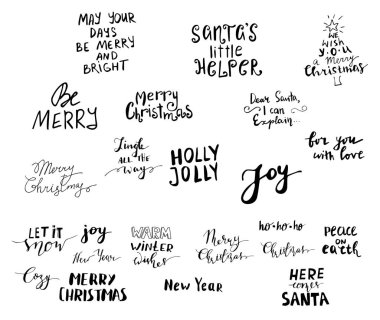 MAY YOUR
DAYS
BE MERRY
AND
BRIGHT
SANTA'S
little
HELPER
WE
WISH
YOU
a Merry
Christmas
Be
MERRY
Merry
Christmas
Dear Santa,
I can
Explain...
Merry
Christmas
Jingle
ALL THE
way
HOLLY
JOLLY
Joy
for you
with love
LET IT
snow
joy
New Year
WARM
WINTER
wishes
Merry
Christmas
ho-ho-ho
Christmas
PEACE
ON
earth
Cozy
MERRY
CHRISTMAS
New Year
HERE
comes
SANTA